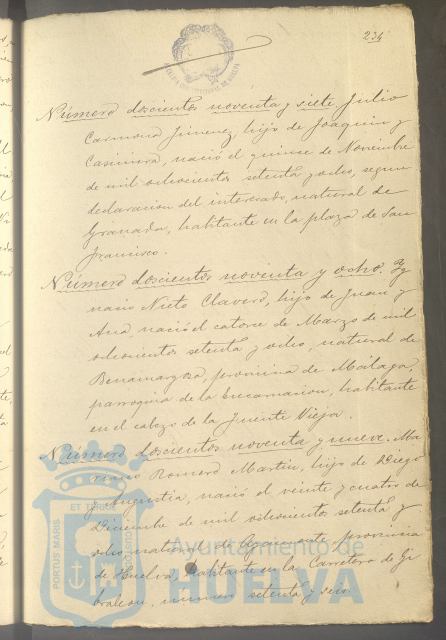 234
Número doscientos noventa y siete. Julio
Carmona Jimenez, hijo de Joaquin y
Casimira, nació el quince de Noviembre
de mil ochocientos setenta y ocho, segun
declaracion del interesado, natural de
Granada, habitante en la plaza de San
Francisco.
Número doscientos noventa y ocho. Yg
nacio Nieto Clavero, hijo de Juan y
Ana, nació el catorce de Marzo de mil
ochocientos setenta y ocho, natural de
Benamargosa, provincia de Málaga,
parroquia de la Encarnacion, habitante
en el cabezo de la Fuente Vieja.
Número doscientos noventa y nueve. Ma
riano Romero Martin, hijo de Diego
y Augustia, nació el veinte y cuatro de
Diciembre de mil ochocientos setenta y
ocho, natural de Ayamonte, provincia
de Huelva, habitante en la Carretera de Gi
braleon, numero setenta y seis.
PORTUS MARIS ET TERRAE CUSTODIA
Ayuntamiento de
HUELVA